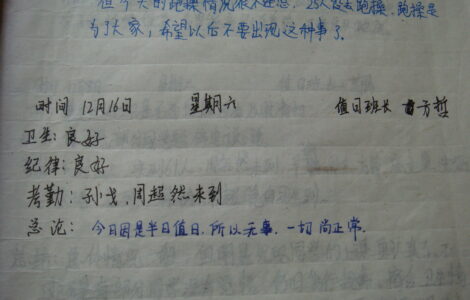 但今天的跑操情况很不理想，25人没去跑操，跑操是
为了大家，希望以后不要出现这种事了。
时间 12月16日 星期六 值日班长 方哲
卫生：良好
纪律：良好
考勤：孙戈，周超然未到
总论：今日因是半日值日，所以无事，一切尚正常.